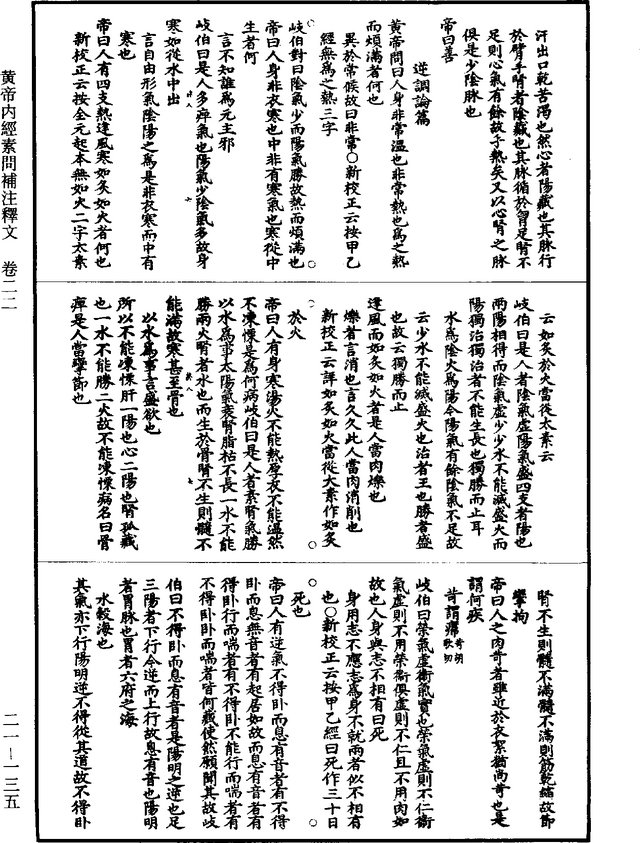 黄帝内經素問補注釋文　卷二二
二一—一三五
汗出口乾苦渴也然心者陽藏也其脉行
於臂手腎者陰藏也其脉循於胷足腎不
足則心氣有餘故手熱矣又以心腎之脉
俱是少陰脉也
帝曰善
逆調論篇
黄帝問曰人身非常温也非常熱也爲之熱
而煩滿者何也
異於常候故曰非常○新校正云按甲乙
經無爲之熱三字
岐伯對曰陰氣少而陽氣勝故熱而煩滿也
帝曰人身非衣寒也中非有寒氣也寒從中
生者何
言不知誰爲元主邪
岐伯曰是人多痹氣也陽氣少陰氣多故身
寒如從水中出
言自由形氣陰陽之爲是非衣寒而中有
寒也
帝曰人有四支熱逢風寒如炙如火者何也
新校正云按全元起本無如火二字太素
云如炙於火當從太素云
岐伯曰是人者陰氣虛陽氣盛四支者陽也
兩陽相得而陰氣虛少少水不能滅盛火而
陽獨治獨治者不能生長也獨勝而止耳
水爲陰火爲陽今陽氣有餘陰氣不足故
云少水不能滅盛火也治者王也勝者盛
也故云獨勝而止
逢風而如炙如火者是人當肉爍也
爍者言消也言久久此人當肉消削也
新校正云詳如炙如火當從太素作如炙
於火
帝曰人有身寒湯火不能熱厚衣不能温然
不凍慄是爲何病岐伯曰是人者素腎氣勝
以水爲事太陽氣衰腎脂枯不長一水不能
勝兩火腎者水也而生於骨腎不生則髓不
能滿故寒甚至骨也
以水爲事言盛欲也
所以不能凍慄肝一陽也心二陽也腎孤藏
也一水不能勝二火故不能凍慄病名曰骨
痹是人當攣節也
腎不生則髓不滿髓不滿則筋乾縮故節
攣拘
帝曰人之肉苛者雖近於衣絮猶尚苛也是
謂何疾
苛謂𤸷
岐伯曰榮氣虛衞氣實也榮氣虛則不仁衞
氣虛則不用榮衞俱虛則不仁且不用肉如
故也人身與志不相有曰死
身用志不應志爲身不就兩者似不相有
也○新校正云按甲乙經曰死作三十日
死也
帝曰人有逆氣不得卧而息有音者有不得
卧而息無音者有起居如故而息有音者有
得卧行而喘者有不得卧不能行而喘者有
不得卧卧而喘者皆何藏使然願聞其故岐
伯曰不得卧而息有音者是陽明之逆也足
三陽者下行今逆而上行故息有音也陽明
者胃脉也胃者六府之海
水穀海也
其氣亦下行陽明逆不得從其道故不得卧